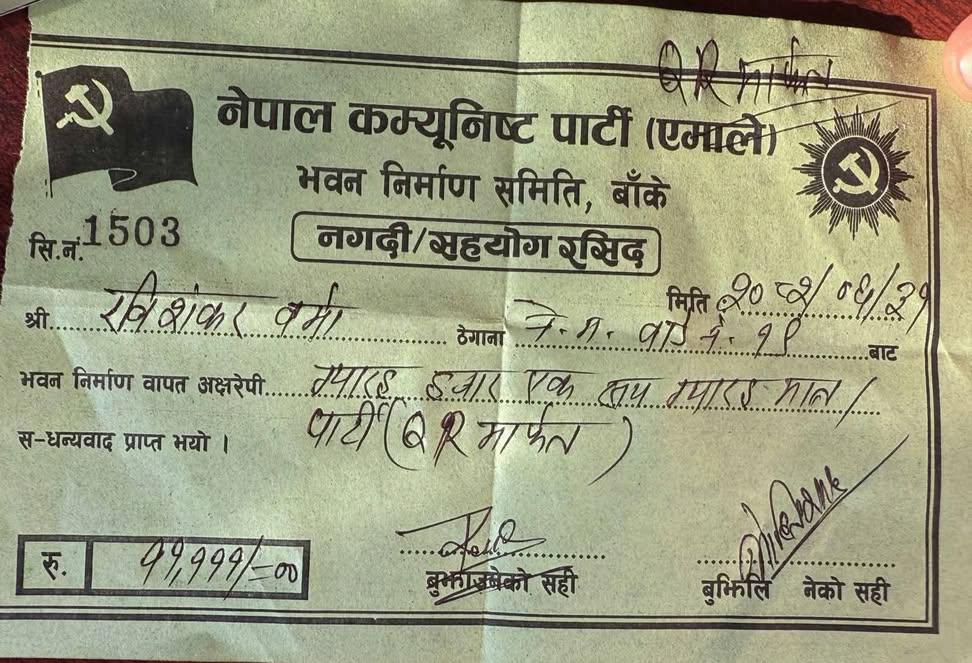 QR मार्फत
नेपाल कम्यूनिष्ट पार्टी (एमाले)
भवन निर्माण समिति, बाँके
सि.नं. 1503
नगदी/सहयोग रसिद
मिति २०८२/०६/३१
श्री रविशंकर वर्मा ठेगाना ने.ग. वार्ड नं. १९ बाट
भवन निर्माण वापत अक्षरेपी ग्यारह हजार एक सय ग्यारह मात्र/
स-धन्यवाद प्राप्त भयो । पार्टी (QR मार्फत)
रु. ११,१११/=००
बुझाउनेको सही बुझिलि नेको सही